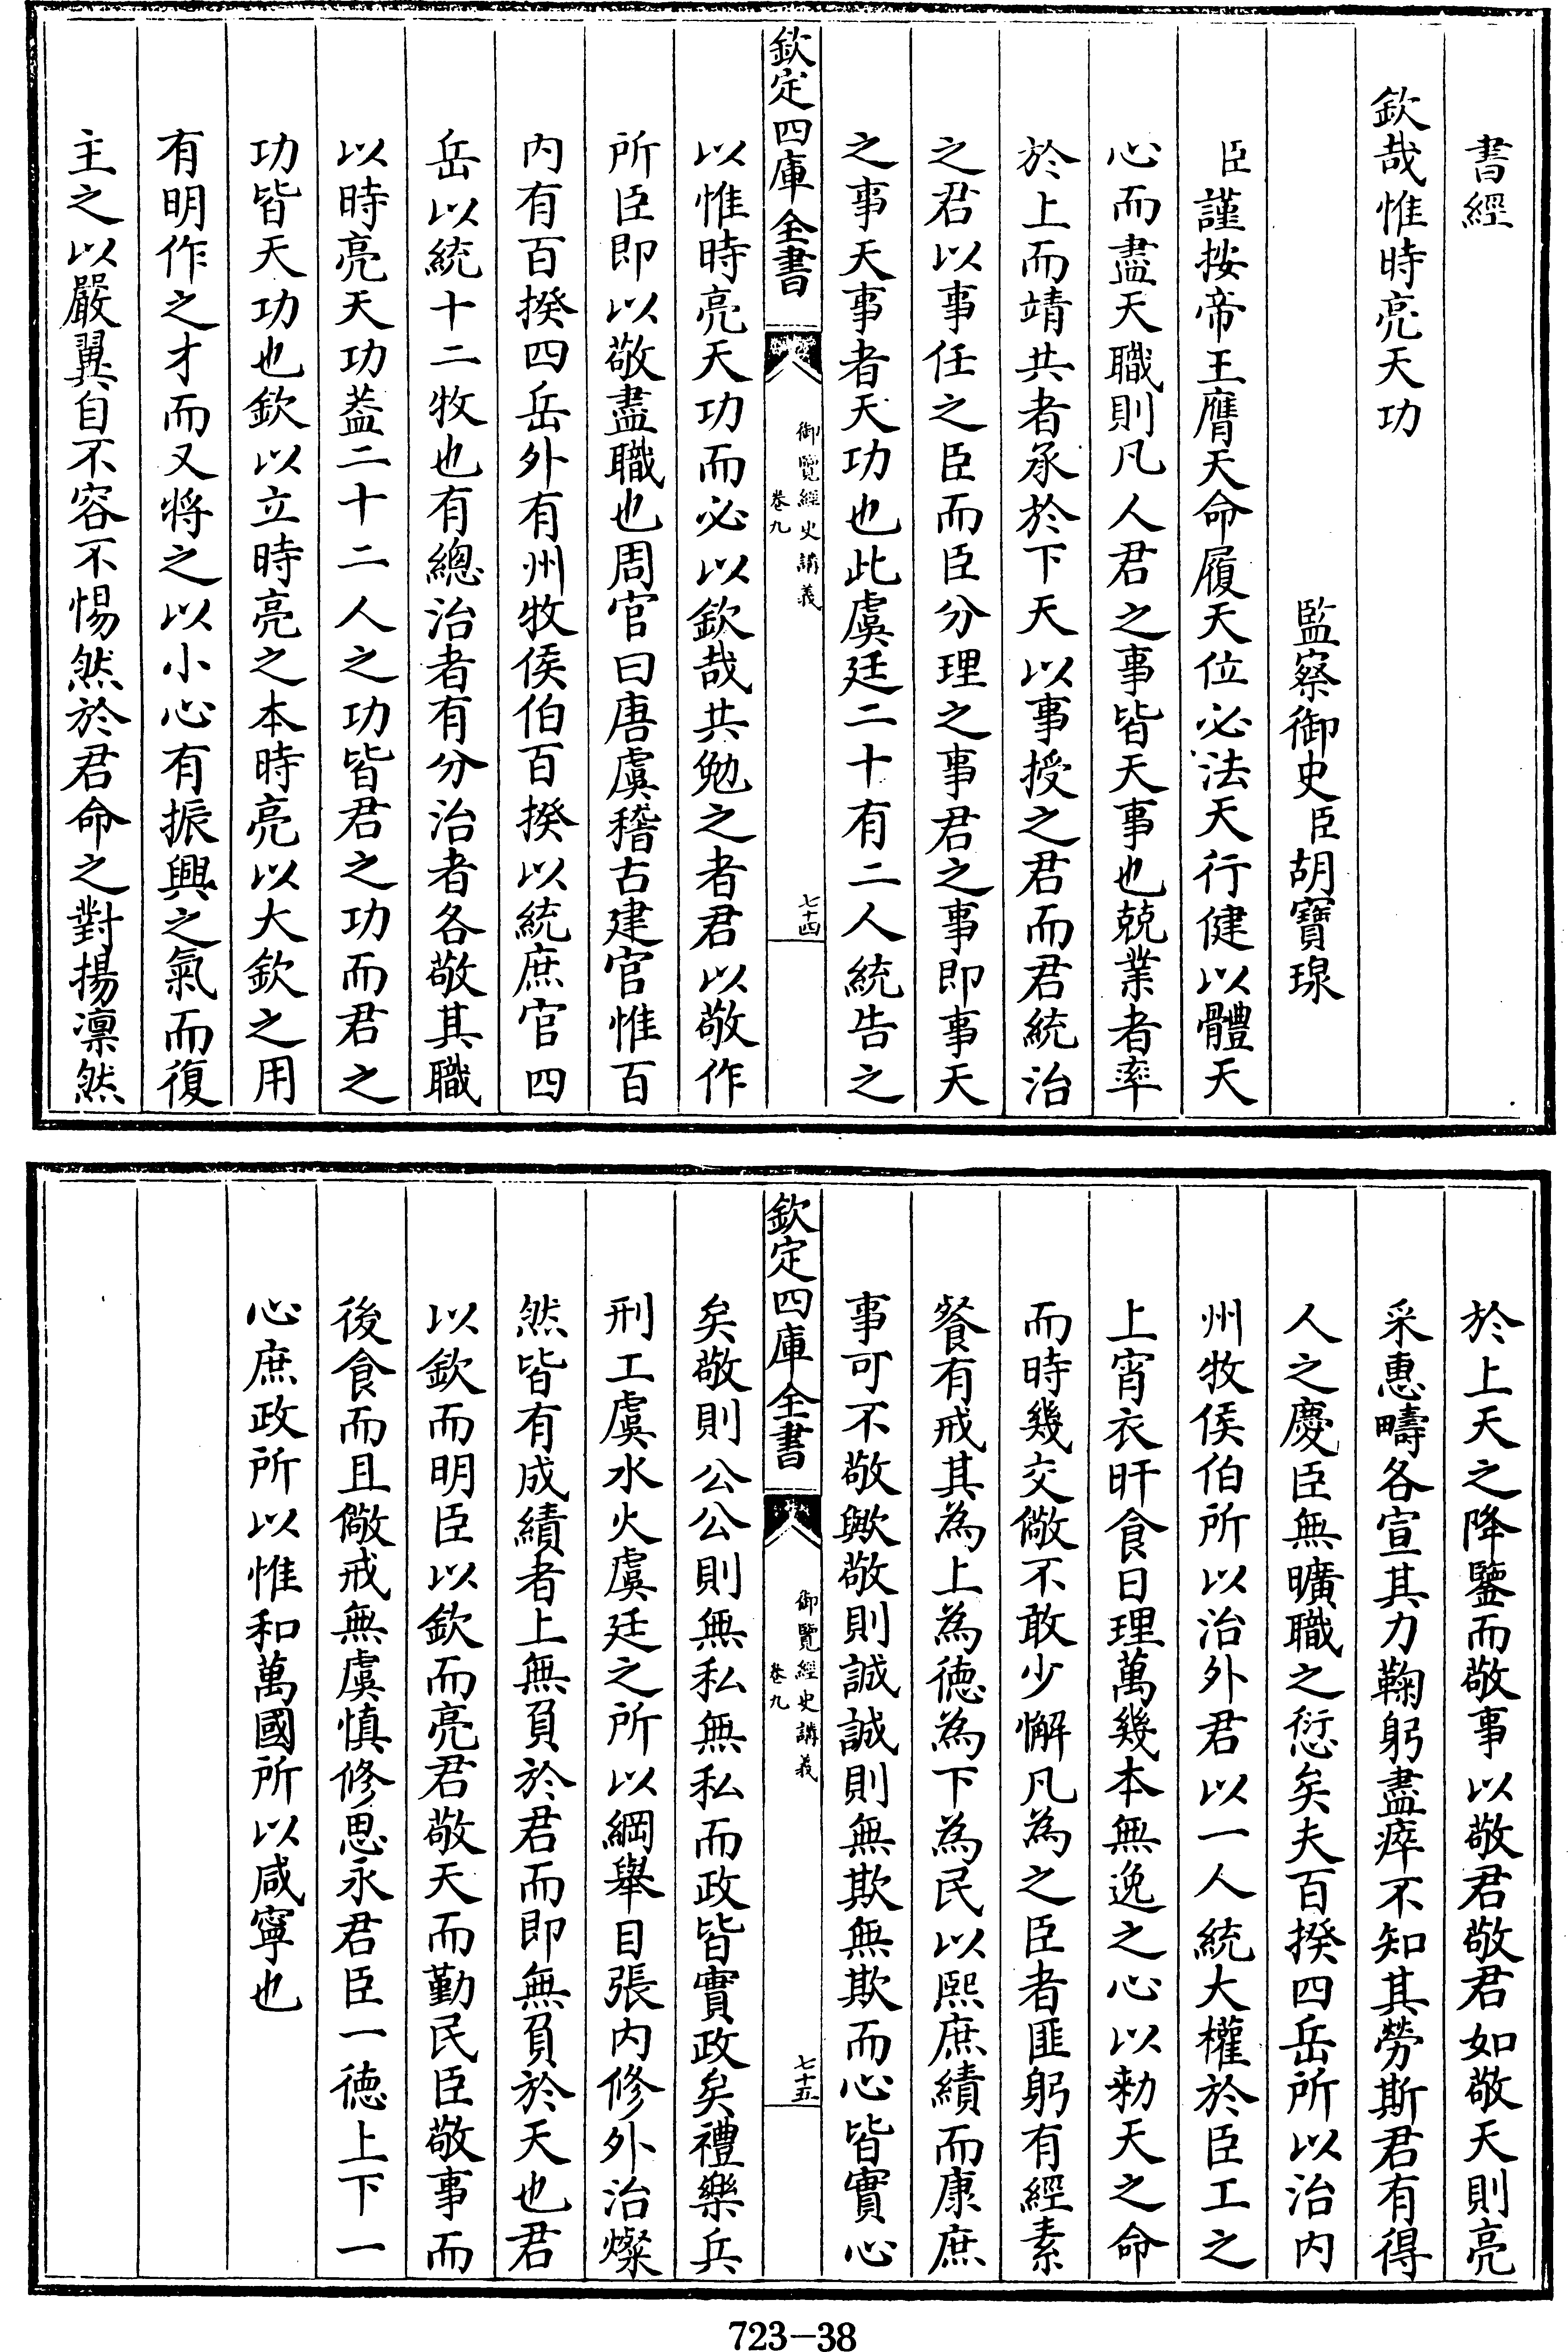 書經
欽哉惟時亮天功
監察御史臣胡寶瑔
臣謹按帝王膺天命履天位必法天行健以體天
心而盡天職則凡人君之事皆天事也兢業者率
於上而靖共者承於下天以事授之君而君統治
之君以事任之臣而臣分理之事君之事即事天
之事天事者天功也此虞廷二十有二人統告之
欽定四庫全書
御覽經史講義
卷九
七十四
以惟時亮天功而必以欽哉共勉之者君以敬作
所臣即以敬盡職也周官曰唐虞稽古建官惟百
内有百揆四岳外有州牧侯伯百揆以統庶官四
岳以統十二牧也有總治者有分治者各敬其職
以時亮天功葢二十二人之功皆君之功而君之
功皆天功也欽以立時亮之本時亮以大欽之用
有明作之才而又將之以小心有振興之氣而復
主之以嚴翼自不容不惕然於君命之對揚凛然
於上天之降鑒而敬事以敬君敬君如敬天則亮
采惠疇各宣其力鞠躬盡瘁不知其勞斯君有得
人之慶臣無曠職之愆矣夫百揆四岳所以治内
州牧侯伯所以治外君以一人統大權於臣工之
上宵衣旰食日理萬幾本無逸之心以勑天之命
而時幾交儆不敢少懈凡為之臣者匪躬有經素
餐有戒其為上為徳為下為民以熙庶績而康庶
事可不敬歟敬則誠誠則無欺無欺而心皆實心
欽定四庫全書
御覽經史講義
卷九
七十五
矣敬則公公則無私無私而政皆實政矣禮樂兵
刑工虞水火虞廷之所以綱舉目張内修外治燦
然皆有成績者上無負於君而即無負於天也君
以欽而明臣以欽而亮君敬天而勤民臣敬事而
後食而且儆戒無虞慎修思永君臣一徳上下一
心庶政所以惟和萬國所以咸寧也
723-38